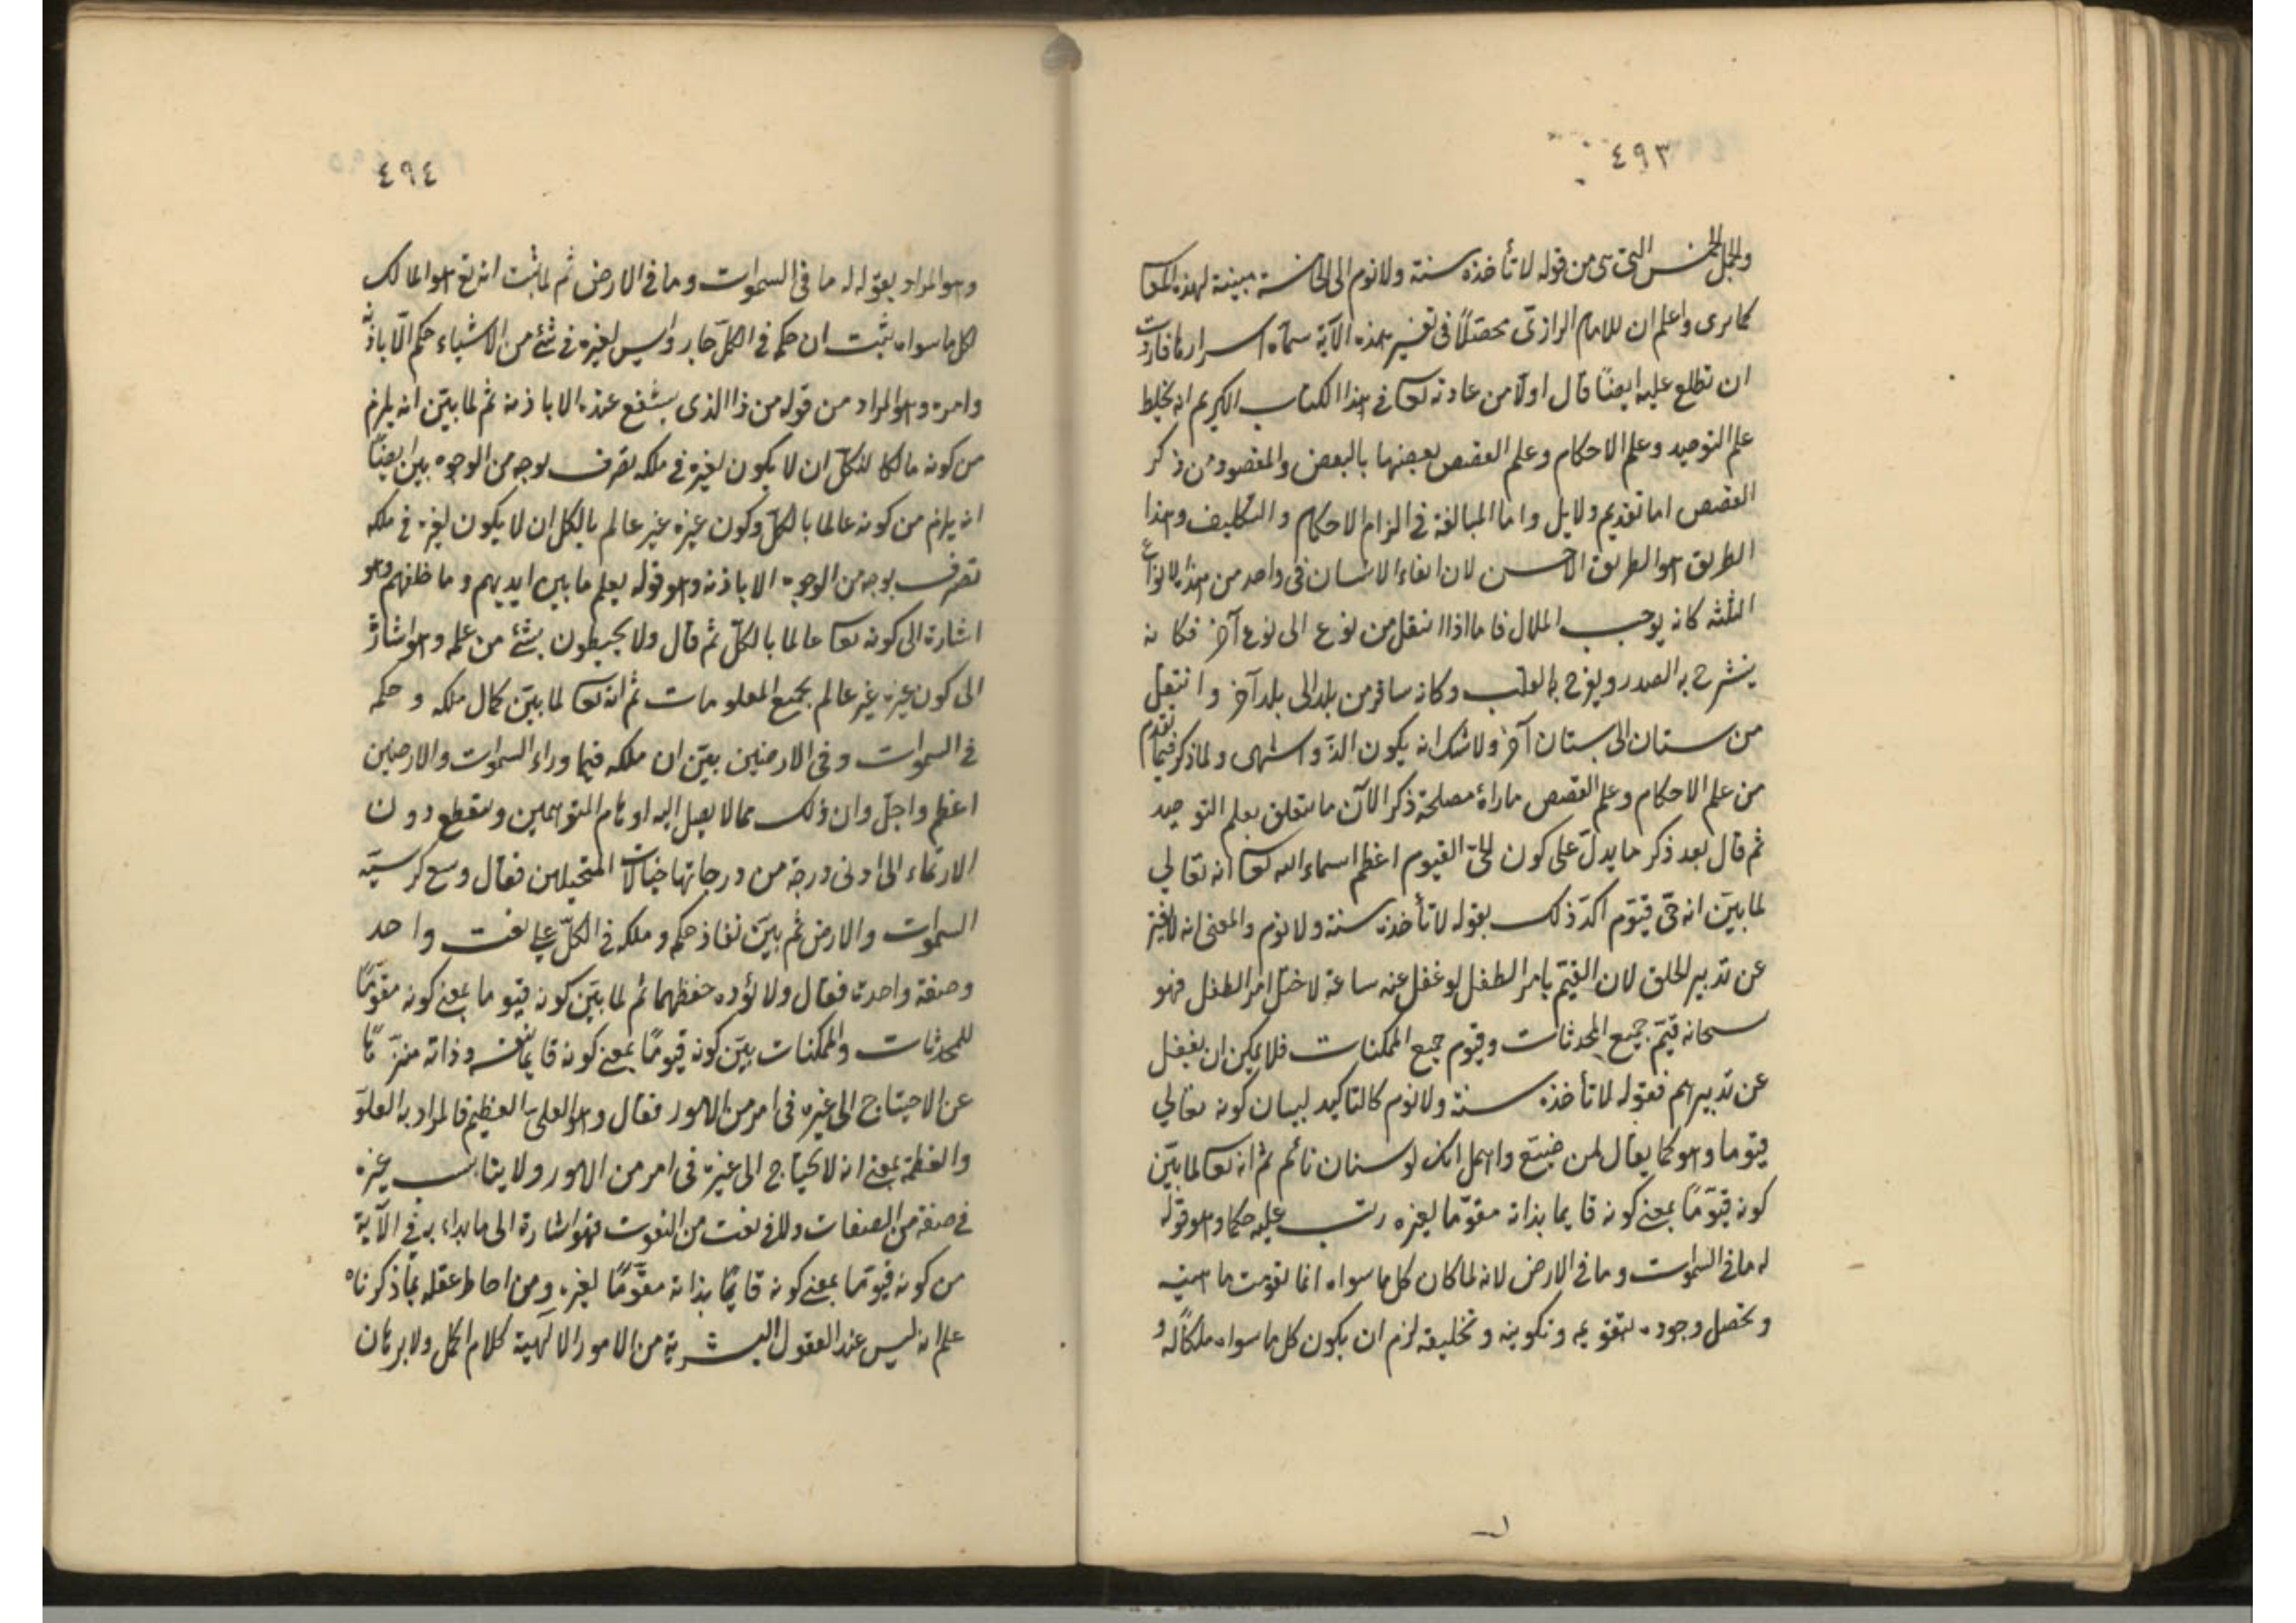 ٤٩٣
والجمل الخمس التي هي من قوله لا تأخذه سنة ولا نوم الى الخامسة مبينة لهذه
كما يرى واعلم ان للامام الرازى فى تفسير هذه الآية سماه اسرارها فاردت
ان تطلع عليه ايضًا قال اولا من عادته تعا فى هذا الكتاب الكريم انه يخلط
علم التوحيد وعلم الاحكام وعلم القصص بعضها بالبعض والمقصود من ذكر
القصص اما تقديم دلايل واما المبالغة فى الزام الاحكام والتكليف وهذا
الطريق هو الطريق الاحسن لان ابقاء الانسان فى واحد من هذه الانواع
الثلثه كانه يوجب الملال فاما اذا انتقل من نوع الى نوع آخر فكانه
ينشرح به الصدر ويفرح به القلب وكانه سافر من بلد الى بلد آخر وانتقل
من بستان الى بستان آخر ولا شك انه يكون الذّ واشهى ولما ذكر فيما تقدم
من علم الاحكام وعلم القصص ماراه مصلحة ذكر الآن ما يتعلق بعلم التوحيد
ثم قال بعد ذكر ما يدلّ على كون الحىّ القيوم اعظم اسماء الله تعا انه تعالي
لما بيّن انه حىّ قيّوم اكدّ ذلك بقوله لا تأخذه سنة ولا نوم والمعنى انه لا يفتر
عن تدبير الخلق لان القيّم بامر الطفل لو غفل عنه ساعة لاختل امر الطفل فهو
سبحانه قيّم جميع المحدثات وقيوم جميع الممكنات فلا يمكن ان يغفل
عن تدبيرهم فقوله لا تأخذه سنة ولا نوم كالتاكيد لبيان كونه تعالي
قيوما وهو كما يقال لمن ضيّع واهمل انك لوسنان نائم ثم انه تعا لما بيّن
كونه قيّومًا بمعنى كونه قايما بذاته مقوّما لغيره رتب عليه حكما وهو قوله
له ما فى السموات وما فى الارض لانه لما كان كل ما سواه انما تقومت ماهيته
وتحصل وجوده بتقويمه وتكوينه وتخليقه لزم ان يكون كل ما سواه ملكًا له و
٤٩٤
وهو المراد بقوله له ما فى السموات وما فى الارض ثم لما ثبت انه تع هو المالك
لكل ما سواه ثبت ان حكمه فى الكلّ جار وليس لغيره فى شئ من الاشياء حكم الّا باذنه
وامره وهو المراد من قوله من ذا الذى يشفع عنده الا باذنه ثم لما بيّن انه يلزم
من كونه مالكا للكلّ ان لا يكون لغيره فى ملكه تصرف بوجه من الوجوه بين ايضًا
انه يلزم من كونه عالما بالكلّ وكون غيره غير عالم بالكل ان لا يكون لغيره فى ملكه
تصرف بوجه من الوجوه الا باذنه وهو قوله يعلم ما بين ايديهم وما خلفهم وهو
اشارة الى كونه تعا عالما بالكلّ ثم قال ولا يحيطون بشئ من علمه وهو اشارة
الى كون غيره غير عالم بجميع المعلومات ثم انه تعا لما بيّن كمال ملكه وحكمه
فى السموات وفى الارضين بيّن ان ملكه فيما وراء السموات والارضين
اعظم واجلّ وان ذلك مما لا يصل اليه اوهام المتوهمين وينقطع دون
الارتقاء الى ادنى درجة من درجاتها خيالات المتخيلين فقال وسع كرسيّه
السموات والارض ثم بيّن نفاذ حكمه وملكه فى الكلّ على نعت واحد
وصفة واحدة فقال ولا يؤده حفظهما ثم لما بيّن كونه قيوما بمعنى كونه مقوّمًا
للمحدثات والممكنات بيّن كونه قيومًا بمعنى كونه قايمًا بنفسه وذاته منزّهًا
عن الاحتياج الى غيره فى امر من الامور فقال وهو العلىّ العظيم فالمراد به العلوّ
والعظمة بمعنى انه لا يحتاج الى غيره فى امر من الامور ولا يناسب غيره
فى صفة من الصفات ولا فى نعت من النعوت فهو اشارة الى ما بداء به فى الآية
من كونه قيومًا بمعنى كونه قايمًا بذاته مقوّمًا لغيره ومن احاط عقله بما ذكرناه
علم انه ليس عند العقول البشرية من الامور الالهية كلام اكمل ولا برهان